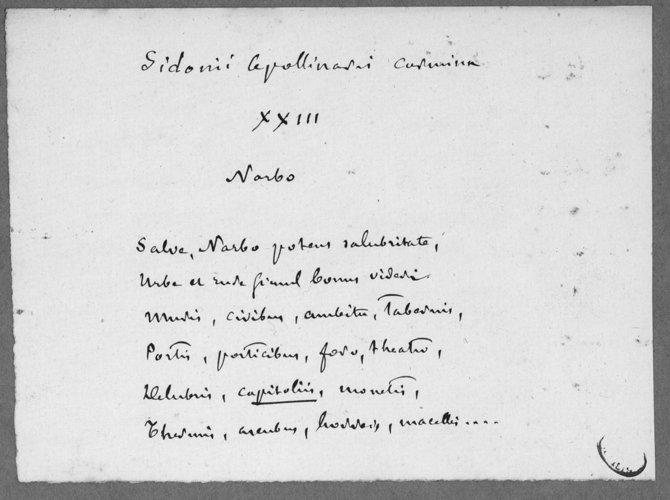 Sidonii Apollinaris carmina
XXIII
Narbo
Salve, Narbo potens salubritate,
Urbe et rure simul bonus videri
Muris, civibus, ambitu, tabernis,
Portis, porticibus, foro, theatro,
Delubris, capitoliis, monetis,
Thermis, arcubus, horreis, macellis....